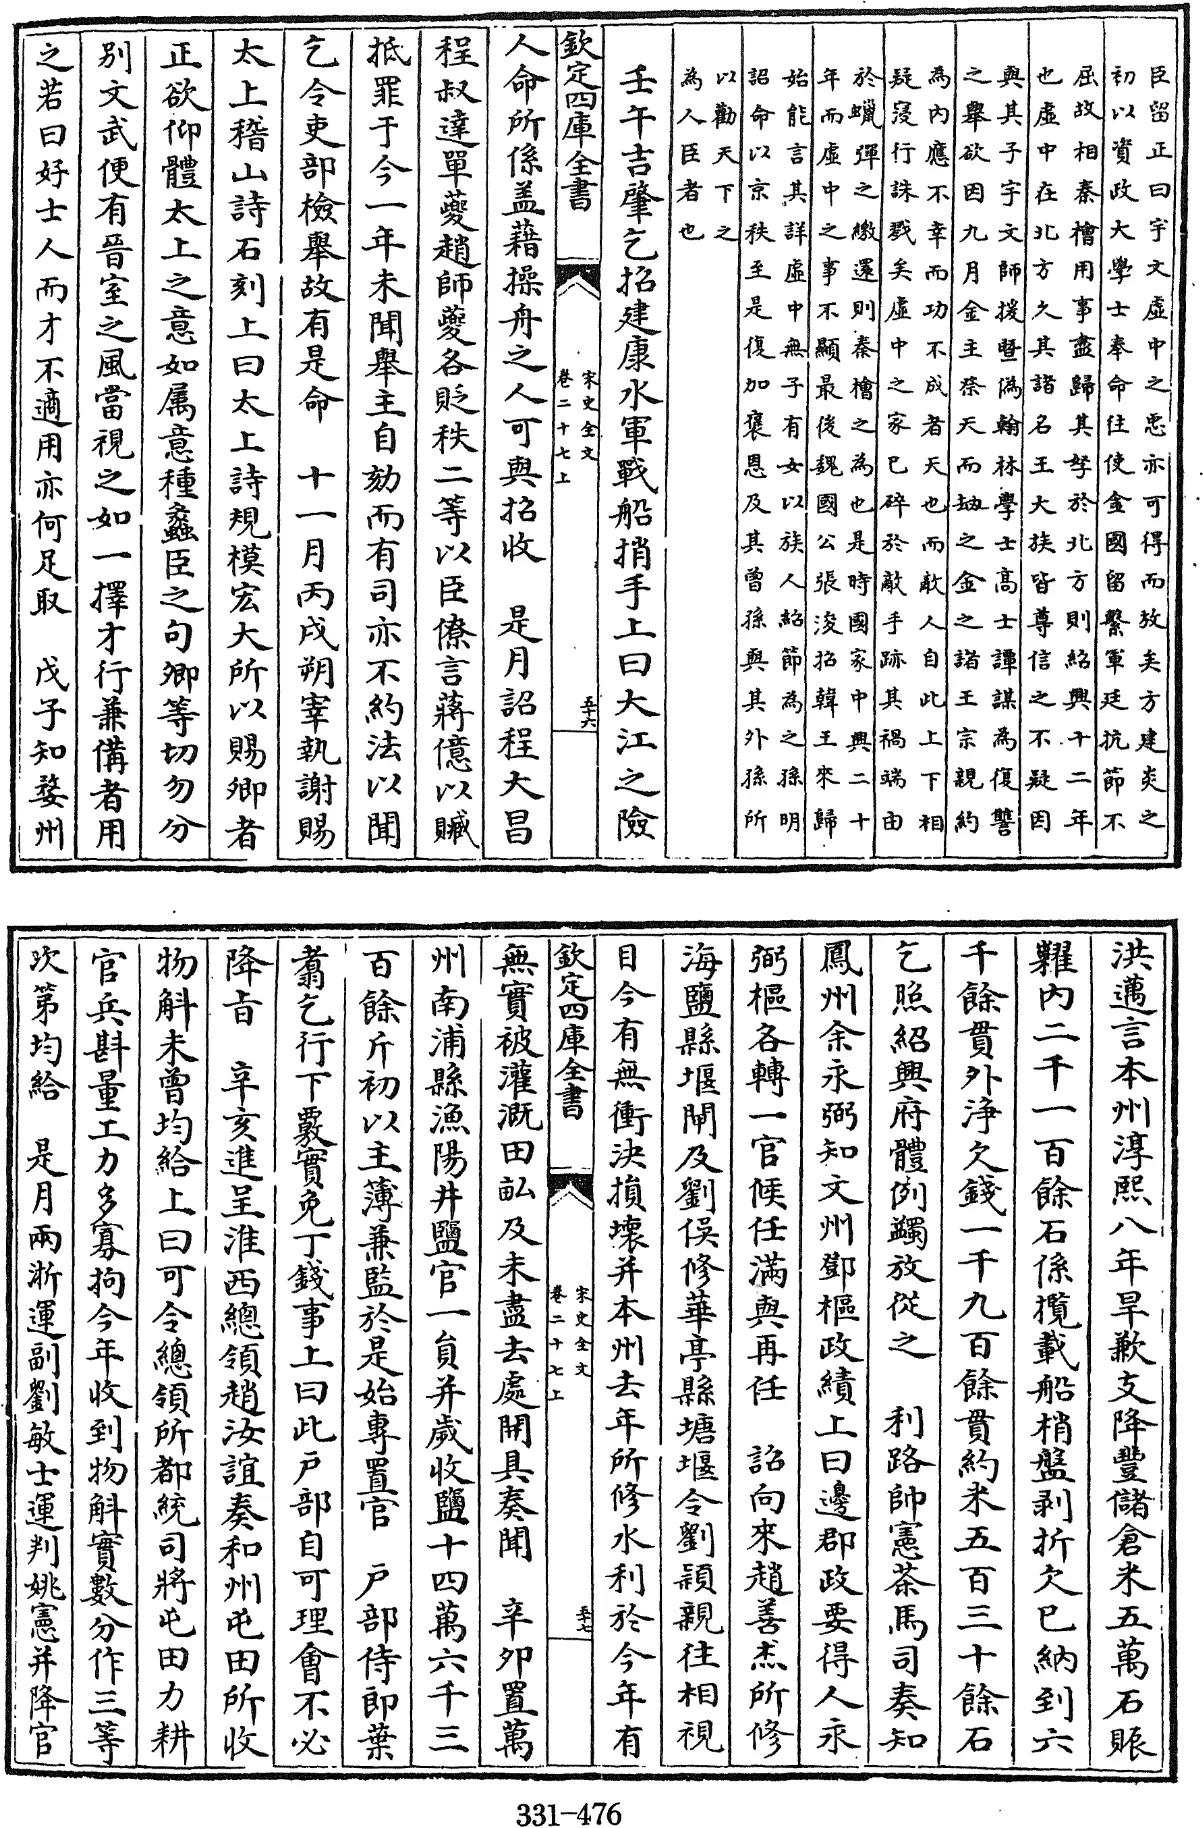 臣留正曰宇文虛中之忠亦可得而攷矣方建炎之
初以資政大學士奉命往使金國留繫軍廷抗節不
屈故相秦檜用事盡歸其孥於北方則紹興十二年
也虛中在北方久其諸名王大族皆尊信之不疑因
與其子宇文師援暨偽翰林學士高士譚謀為復讐
之舉欲因九月金主祭天而刼之金之諸王宗親約
為內應不幸而功不成者天也而敵人自此上下相
疑寖行誅戮矣虛中之家已碎於敵手跡其禍端由
於蠟彈之繳還則秦檜之為也是時國家中興二十
年而虛中之事不顯最後魏國公張浚招韓王來歸
始能言其詳虛中無子有女以族人紹節為之孫明
詔命以京秩至是復加褒恩及其曾孫與其外孫所
以勸天下之
為人臣者也
壬午吉肇乞招建康水軍戰船捎手上曰大江之險
欽定四庫全書
宋史全文
卷二十七上
五十六
人命所係盖藉操舟之人可與招收 是月詔程大昌
程叔達單夔趙師夔各貶秩二等以臣僚言蔣億以贓
抵罪于今一年未聞舉主自劾而有司亦不約法以聞
乞令吏部檢舉故有是命 十一月丙戌朔宰執謝賜
太上稽山詩石刻上曰太上詩規模宏大所以賜卿者
正欲仰體太上之意如属意種蠡臣之句卿等切勿分
別文武便有晉室之風當視之如一擇才行兼備者用
之若曰好士人而才不適用亦何足取 戊子知婺州
洪邁言本州淳熙八年旱歉支降豐儲倉米五萬石賑
糶内二千一百餘石係攬載船梢盤剥折欠已納到六
千餘貫外淨欠錢一千九百餘貫約米五百三十餘石
乞照紹興府體例蠲放從之 利路帥憲茶馬司奏知
鳳州余永弼知文州鄧樞政績上曰邊郡政要得人永
弼樞各轉一官候任滿與再任 詔向來趙善杰所修
海鹽縣堰閘及劉俁修華亭縣塘堰令劉頴親往相視
目今有無衝決損壞并本州去年所修水利於今年有
欽定四庫全書
宋史全文
卷二十七上
五十七
無實被灌溉田畆及未盡去處開具奏聞 辛卯置萬
州南浦縣漁陽井鹽官一員并歲收鹽十四萬六千三
百餘斤初以主簿兼監於是始專置官 戸部侍郎葉
翥乞行下覈實免丁錢事上曰此戸部自可理會不必
降旨 辛亥進呈淮西總領趙汝誼奏和州屯田所收
物斛未曾均給上曰可令總領所都統司將屯田力耕
官兵斟量工力多寡拘今年收到物斛實數分作三等
次第均給 是月兩浙運副劉敏士運判姚憲并降官
331-476